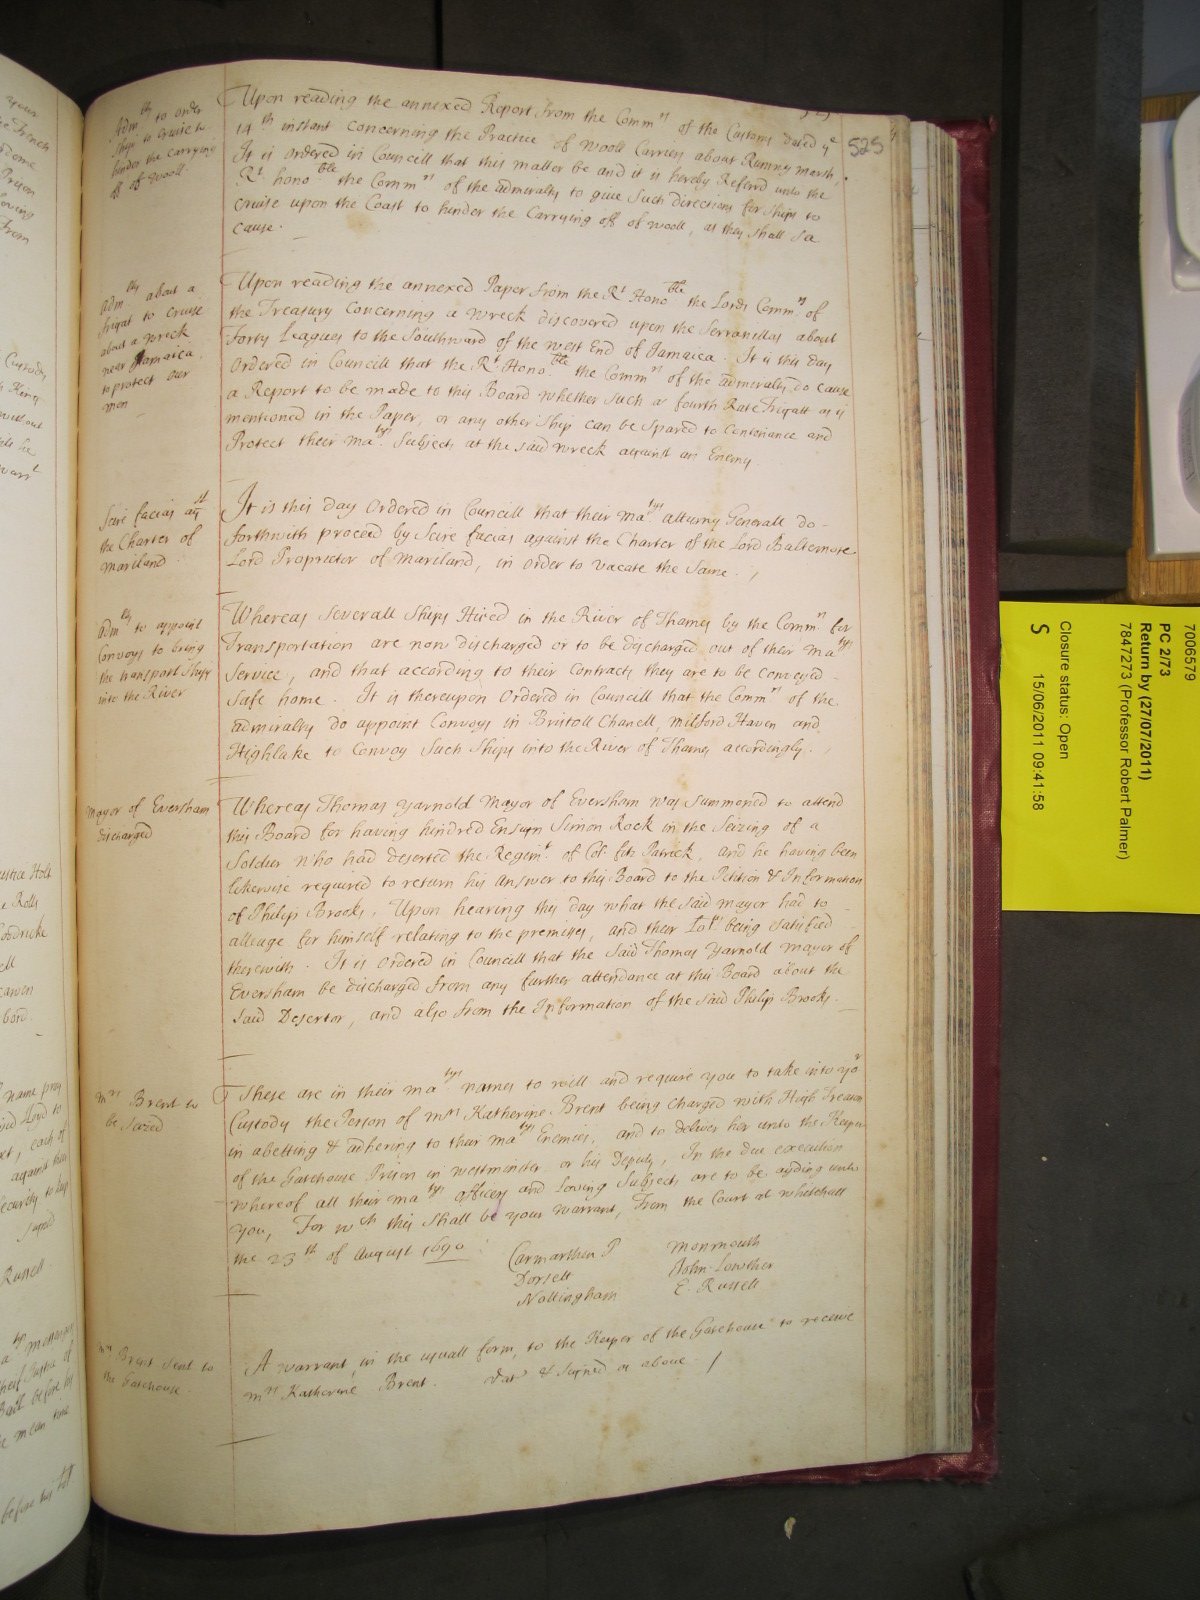 525
Adm^ty to order
Ships to Cruise to
hinder the Carrying
off of wooll.
Upon reading the annexed Report from the Comm^rs of the Customs dated y^e
14^th instant concerning the Practice of wooll Carriers about Rumny marsh,
It is ordered in Councill that this matter be and it is hereby Referrd unto the
R^t hono^ble the Comm^rs of the admiralty to give Such directions for Ships to
Cruise upon the Coast to hinder the Carrying off of wooll, as they shall see
cause.
Adm^ty about a
frigat to Cruise
about a wreck
near Jamaica
to protect our
men
Upon reading the annexed Paper from the R^t Hono^ble the Lords Comm^rs of
the Treasury Concerning a wreck discovered upon the Serranillas about
Forty Leagues to the Southward of the west End of Jamaica. It is this day
Ordered in Councill that the R^t Hono^ble the Comm^rs of the admiralty do cause
a Report to be made to this Board whether such a fourth Rate Frigatt as is
mentioned in the Paper, or any other Ship can be Spared to Contenance and
Protect their Ma^tys Subjects at the said wreck against an Enemy
Scire facias ag^st
the Charter of
Mariland
It is this day Ordered in Councill that their Ma^tys atturny Generall do -
forthwith proceed by Scire facias against the Charter of the Lord Baltemore
Lord Proprietor of Mariland, in order to vacate the Same. /
Adm^ty to appoint
Convoys to bring
the transport Ships
into the River
Whereas Severall Ships Hired in the River of Thames by the Comm^rs for
Transportation are now discharged or to be discharged out of their Ma^tys
Service, and that according to their Contracts they are to be convoyed -
Safe home. It is thereupon Ordered in Councill that the Comm^rs of the
admiralty do appoint Convoys in Bristoll Chanell, Milford Haven and
Highlake to Convoy Such Ships into the River of Thames accordingly.
Mayor of Eversham
discharged
Whereas Thomas Yarnold Mayor of Eversham was summoned to attend
this Board for having hindred Ensign Simon Rock in the Seizing of a
Soldier who had deserted the Regim^t of Col. fitz Patrick, and he having been
likewise required to return his answer to this Board to the Petition & Information
of Philip Brooks, Upon hearing this day what the said mayor had to -
alleage for himself relating to the premises, and their Lo^ps being satisfied
therewith. It is Ordered in Councill that the said Thomas Yarnold mayor of
Eversham be discharged from any further attendance at this Board about the
said Desertor, and also from the Information of the said Philip Brooks.
M^rs Brent to
be Seized
These are in their Ma^tys names to will and require you to take into yo^r
Custody the Person of M^rs Katherine Brent being charged with High Treason
in abetting & adhering to their Ma^tys Enemies, and to deliver her unto the Keeper
of the Gatehouse Prison in westminster or his Deputy, In the due execution
whereof all their Ma^tys officers and Loving Subjects are to be ayding unto
you, For w^ch this shall be your warrant, From the Court at whitehall
the 23^th of August 1690
Carmarthen P
Dorsett
Nottingham
Monmouth
John Lowther
E. Russell
M^rs Brent sent to
the Gatehouse
A warrant, in the usuall form, to the Keeper of the Gatehouse to receive
M^rs Katherine Brent. dat^d & signed as above /
7006579
PC 2/73
Return by (27/07/2011)
7847273 (Professor Robert Palmer)
Closure status: Open
S 15/06/2011 09:41:58